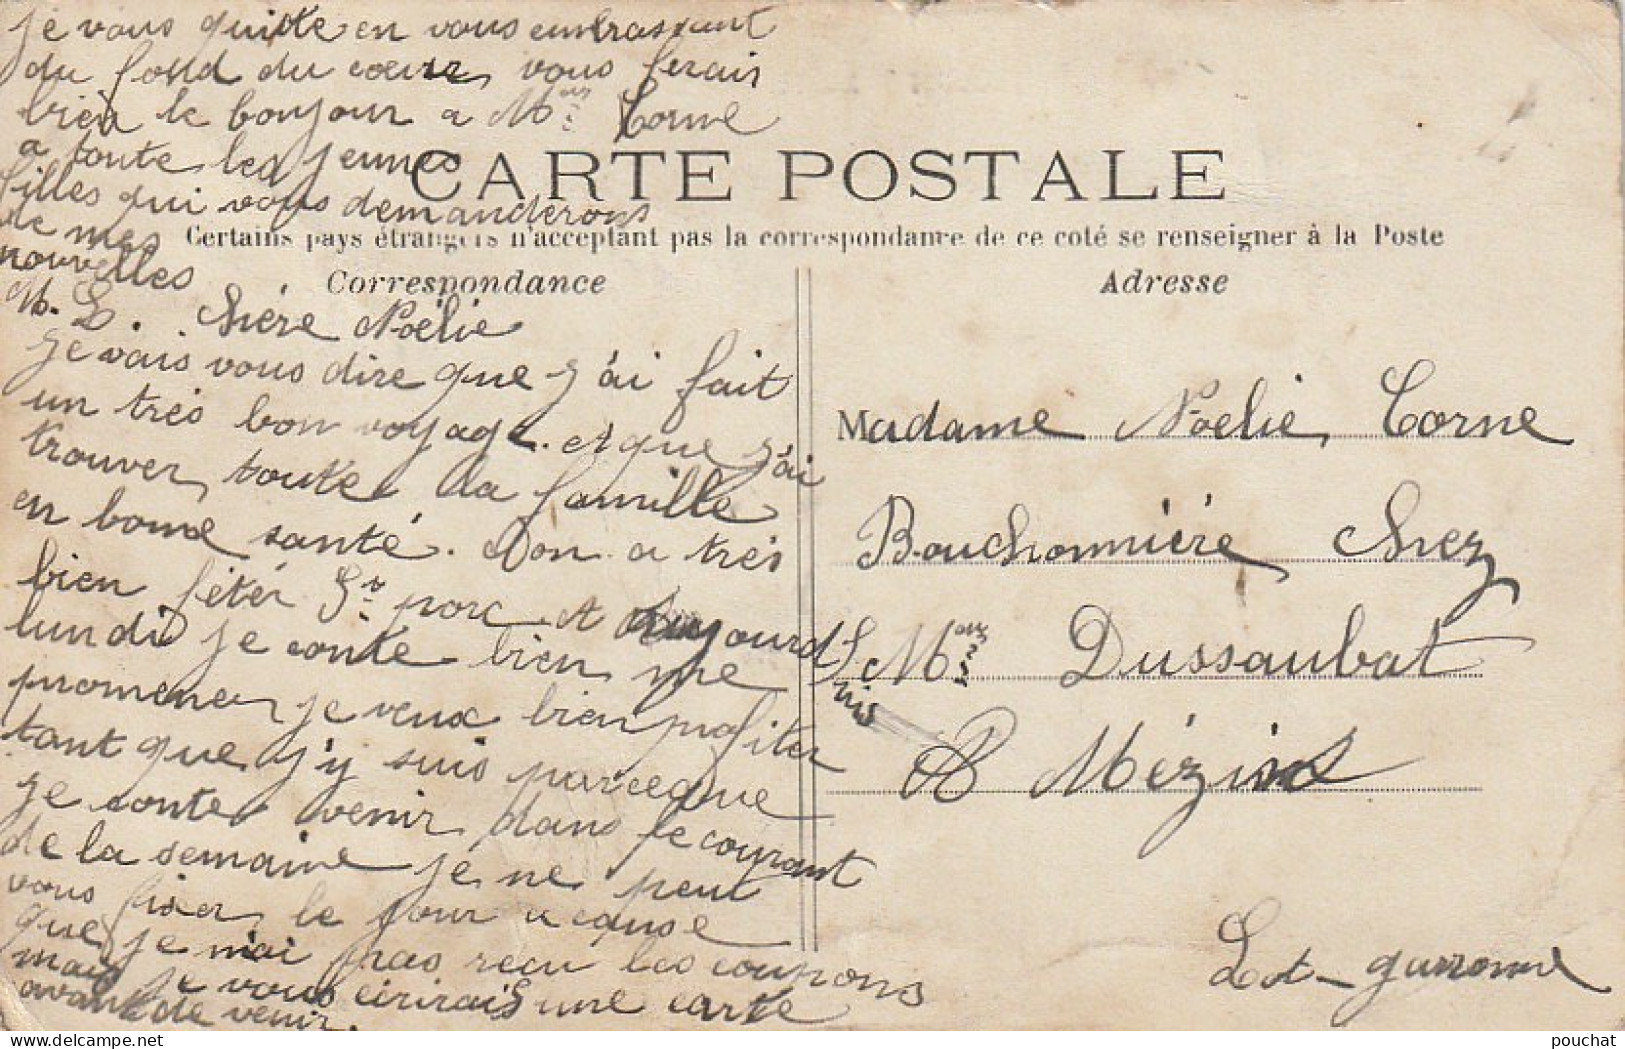 je vous quitte en vous embrassant
du fond du coeur, vous ferais
bien le bonjour a M Corne
a toute les jeunes
filles qui vous demanderons
de mes
nouvelles
M. L.
CARTE POSTALE
Certains pays étrangers n'acceptant pas la correspondance de ce coté se renseigner à la Poste
Correspondance
Chére Noélie
je vais vous dire que j'ai fait
un trés bon voyage. et que j'ai
trouver toute la famille
en bonne santé. don a trés
bien fétér St porc et aujourd
huis
lundi je conte bien me
promener je veux bien profiter
tant que j'y suis parceque
je conte venir dans le courant
de la semaine je ne peut
vous fixer le jour a cause
que je n'ai pas recu les coupons
mais je vous écrirais une carte
avant de venir.
Adresse
Madame Noélie Corne
Bouchonniére Chez
M Dussaubat
A Mézin
Lot-garronne
pouchat